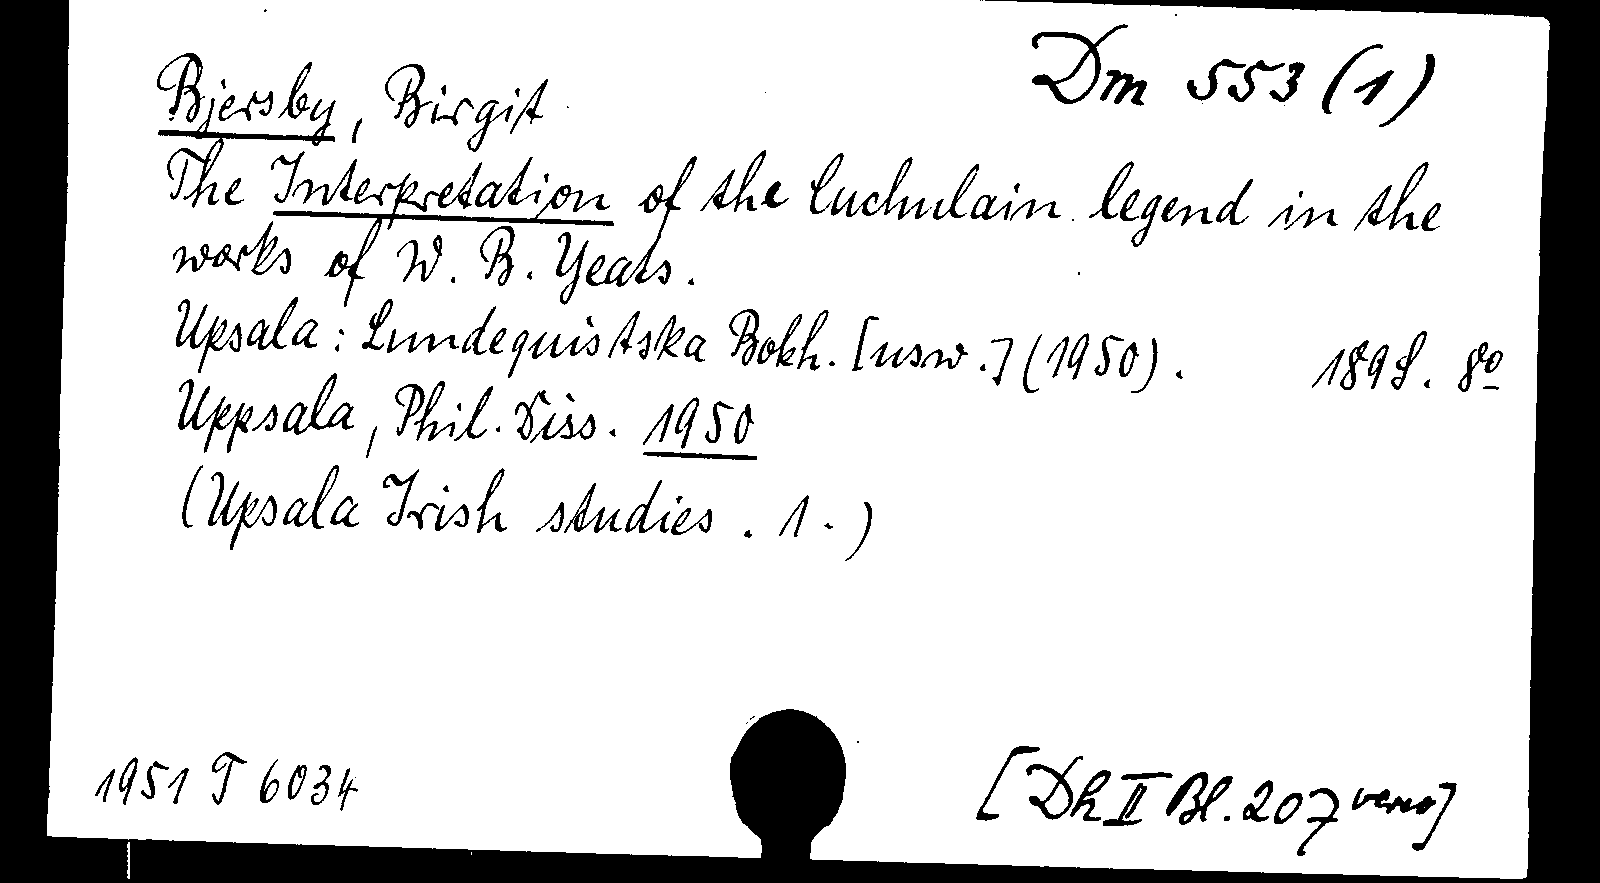 Dm 553 (1)
Bjersby, Birgit
The Interpretation of the Cuchulain legend in the
works of W. B. Yeats.
Upsala: Lundequistska Bokh. [usw.] (1950). 189 S. 8º
Uppsala, Phil. Diss. 1950
(Upsala Irish studies. 1.)
1951 T 6034
[Dh II Bl. 207 verso]